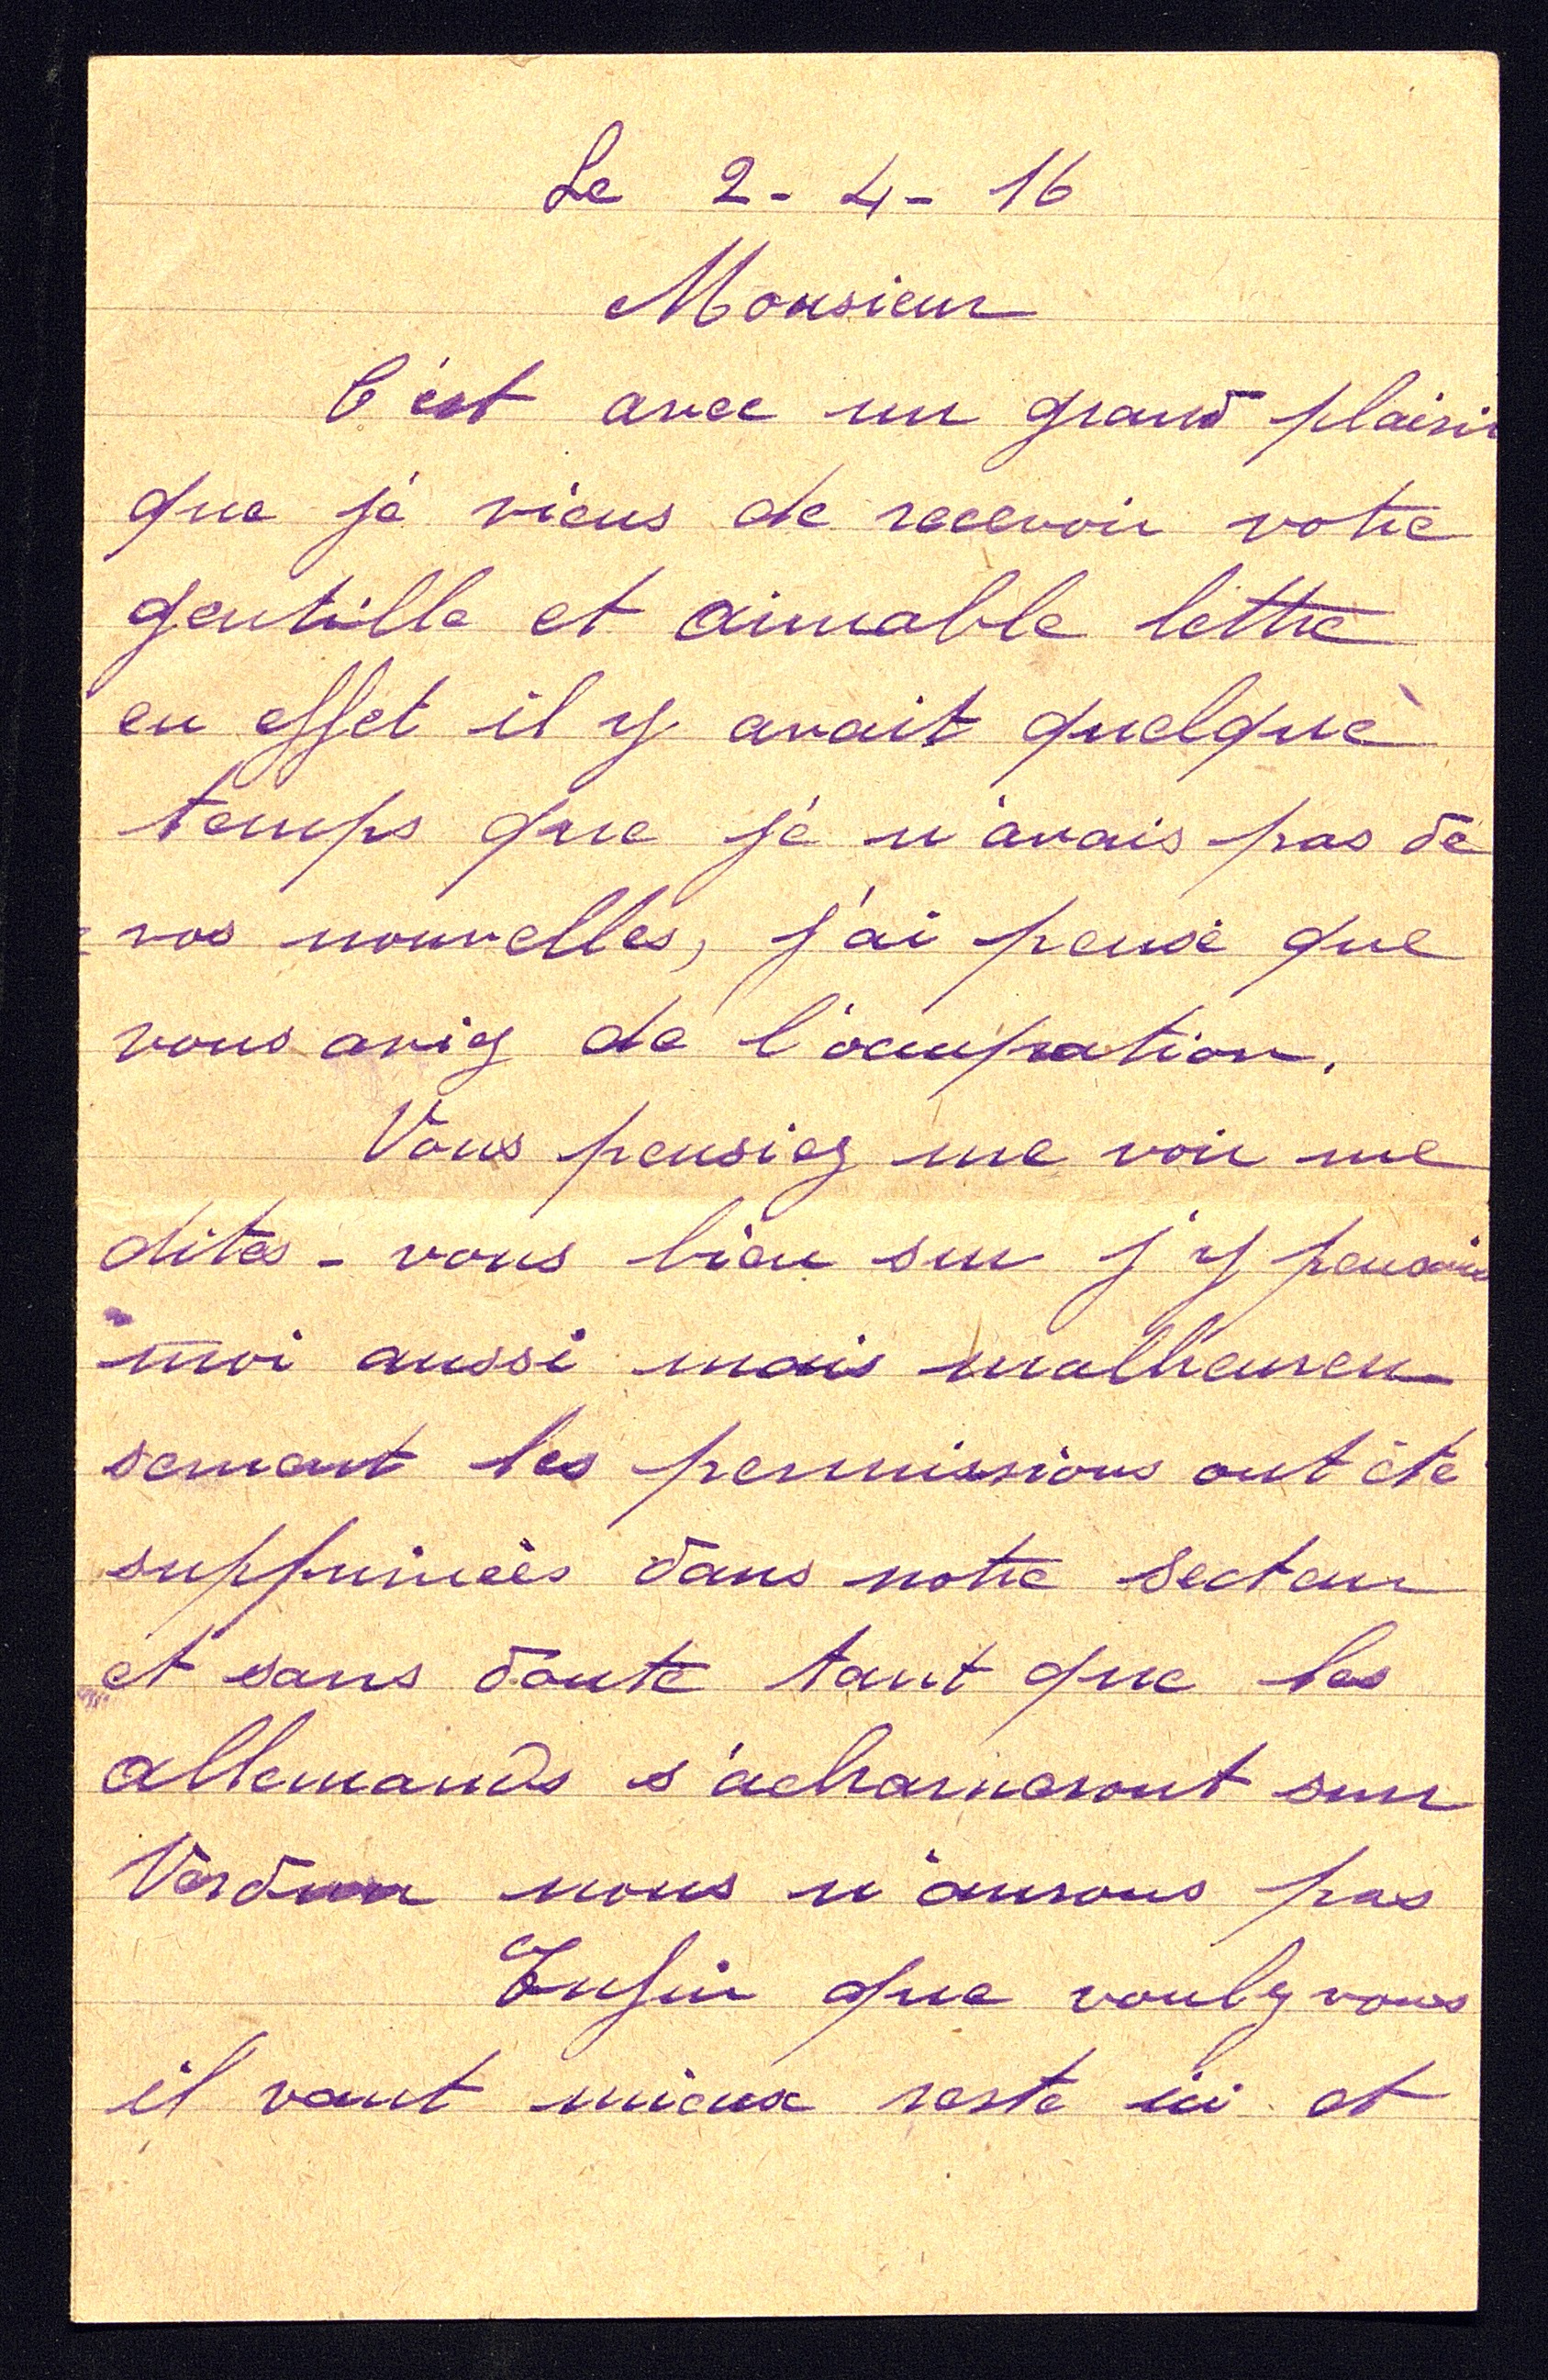 Le 2-4-16
Monsieur
C'est avec un grand plaisir
que je viens de recevoir votre
gentille et aimable lettre
en effet il y avait quelque
temps que je n'avais pas de
vos nouvelles, j'ai pensé que
vous aviez de l'ocupation.
Vous pensiez me voir me
dites-vous bien sur j'y pensais
moi aussi mais malheureu-
sement les permissions ont été
supprimées dans notre secteur
et sans doute tant que les
allemands s'acharneront sur
Verdun nous n'aurons pas
Enfin que voulez vous
il vaut mieux reste ici et